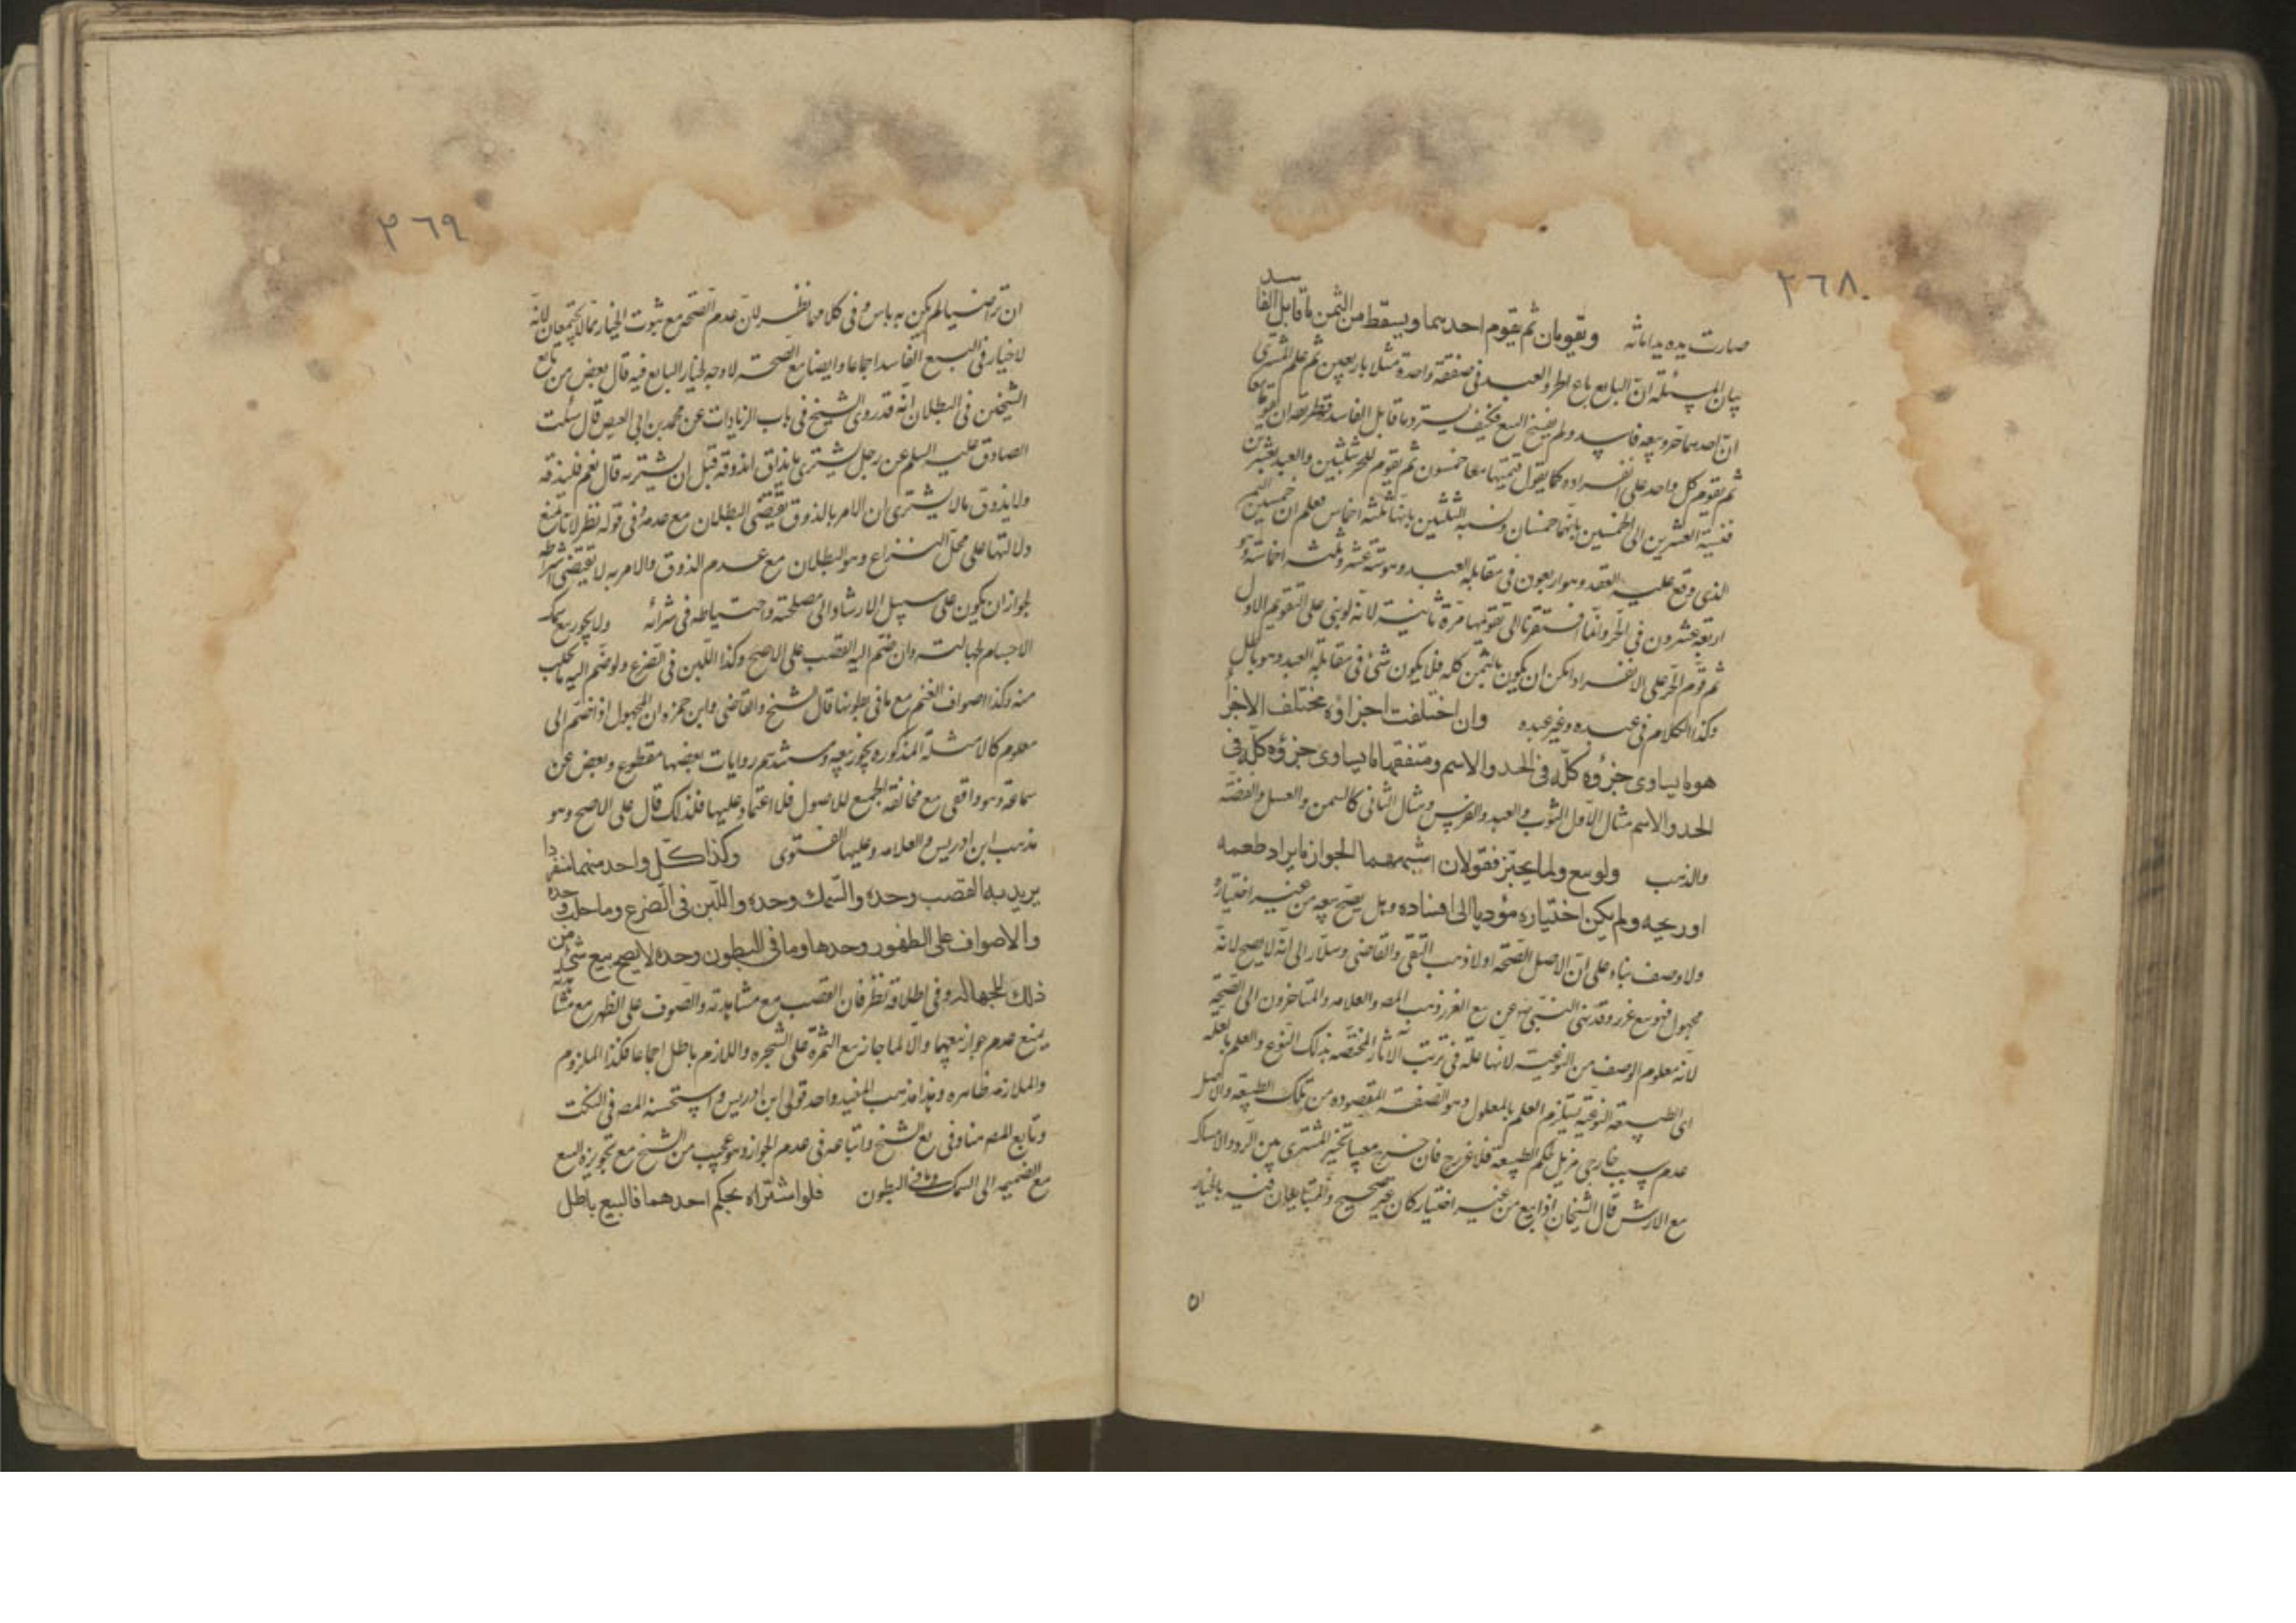 ٢٦٨
صارت يده يد امانة ويقومان ثم يقوم احدهما ويسقط من الثمن ما قابل الفاسد
بيان المسئلة ان البايع باع الحر والعبد في صفقة واحدة مثلا باربعين ثم علم المشترى
ان احدهما حر وبيعه فاسد ولم يفسخ البيع فكيف يسترد ما قابل الفاسد فطريقه ان يقوما معا
ثم يقوم كل واحد على انفراده كما يقول قيمتهما معا خمسون ثم يقوم الحر بثلثين والعبد بعشرين
فنسبة العشرين الى الخمسين بانها خمسان ونسبة الثلثين بانها ثلثة اخماس فعلم ان خمسى الثمن
الذى وقع عليه العقد وهو اربعون في مقابلة العبد وهو ستة عشر وثلثة اخماسه وهو
اربعة وعشرون في الحر وانما افتقرنا الى تقويمها مرة ثانية لانه لو بنى على التقويم الاول
ثم قوم الحر على الانفراد امكن ان يكون بالثمن كله فلا يكون شئ في مقابلة العبد وهو باطل
وكذا الكلام في عبده وغير عبده وان اختلفت اجزاؤه مختلف الاجزا
هو ما يساوى جزؤه كله في الحد والاسم ومتفقها ما يساوى جزؤه كله في
الحد والاسم مثال الاول الثوب والعبد والفرس ومثال الثانى كالسمن والعسل والفضة
والذهب ولو بيع ولما يختبر فقولان اشبههما الجواز ما يراد طعمه
او ريحه ولم يكن اختياره مؤديا الى افساده وهل يصح بيعه من غير اختياره
ولا وصف بناء على ان الاصل الصحة او لا ذهب التقى والقاضى وسلار الى انه لا يصح لانه
مجهول فهو بيع غرر وقد نهى النبى ص عن بيع الغرر وذهب المص والعلامه والمتاخرون الى الصحة
لانه معلوم الوصف من النوعية لانها علة في ترتب الآثار المختصه بذلك النوع والعلم بالعلة
اى الطبيعة النوعية يستلزم العلم بالمعلول وهو الصفة المقصوده من تلك الطبيعة والاصل
عدم سبب خارجى مزيل لحكم الطبيعة فلا غرر ح فان خرج معيبا تخير المشترى بين الرد والامساك
مع الارش قال الشيخان اذا بيع من غير اختيار كان غير صحيح والمتبايعان فيه بالخيار
٢٦٩
ان تراضيا لم يكن به باس وفى كلامهما نظر لان عدم الصحة مع ثبوت الخيار مما لا يجتمعان لانه
لا خيار في البيع الفاسد اجماعا وايضا مع الصحة لا وجه لخيار البايع فيه قال بعض من تابع
الشيخين في البطلان انه قد روى الشيخ في باب الزيادات عن محمد بن ابى العيص قال سئلت
الصادق عليه السلم عن رجل يشترى ما يذاق ايذوقه قبل ان يشتريه قال نعم فليذقه
ولا يذوق ما لا يشترى ان الامر بالذوق يقتضى البطلان مع عدمه وفى قوله نظر لانا نمنع
دلالتها على محل النزاع وهو البطلان مع عدم الذوق والامر به لا يقتضى اشتراطه
لجواز ان يكون على سبيل الارشاد الى مصلحته واحتياطه في شرائه ولا يجوز بيع سمك
الاجسام لجهالته وان ضم اليه القصب على الاصح وكذا اللبن في الضرع ولو ضم اليه ما يحلب
منه وكذا اصواف الغنم مع ما فى بطونها قال الشيخ والقاضى وابن حمزه ان المجهول اذا ضم الى
معلوم كالامثلة المذكوره يجوز بيعه ومستندهم روايات بعضها مقطوع وبعض عن
سماعة وهو واقفى مع مخالفة الجميع للاصول فلا اعتماد عليها فلذلك قال على الاصح وهو
مذهب ابن ادريس والعلامه وعليها الفتوى وكذا كل واحد منهما منفردا
يريد به القصب وحده والسمك وحده واللبن في الضرع وما حلب وحده
والاصواف على الظهور وحدها وما فى البطون وحده لا يصح بيع شئ من
ذلك للجهاله وفى اطلاقه نظر فان القصب مع مشاهدته والصوف على الظهر مع مشاهدته
يمنع عدم جواز بيعهما والا لما جاز بيع الثمرة على الشجره واللازم باطل اجماعا فكذا الملزوم
والملازمه ظاهره وهذا مذهب المفيد واحد قولى ابن ادريس واستحسنه المص في النكت
وتابع المص هنا وفى يع الشيخ واتباعه في عدم الجواز وهو عجيب من الشيخ مع تجويزه البيع
مع الضميمه الى السمك وما فى البطون فلو اشتراه بحكم احدهما فالبيع باطل